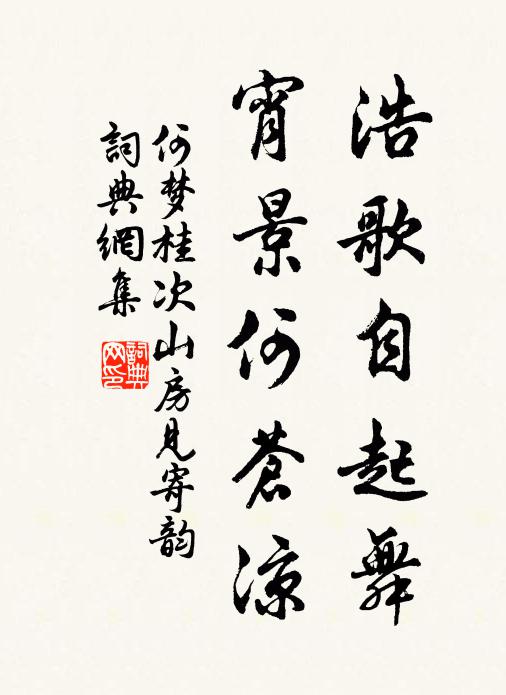 浩歌自起舞
宵景何蒼涼
何梦桂次山房見寄韵
詞典網集
詞典网印